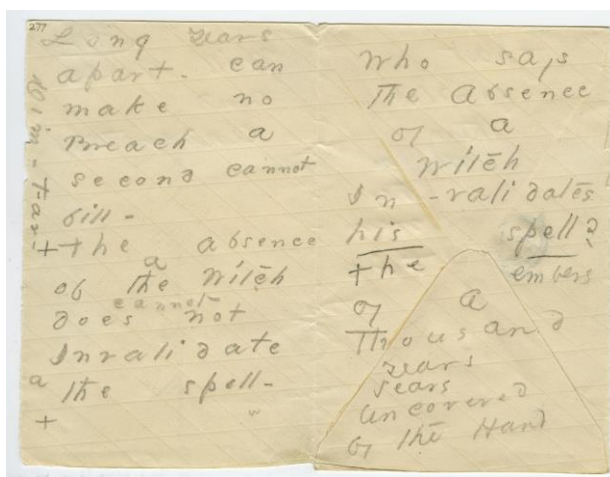 277
Long years
apart - can
make no
Breach a
second cannot
fill -
+ the absence
a
of the Witch
cannot
does not
Invalidate
a the spell -
+
Who says
The Absence
of a
Witch
In -validates
his spell?
the embers
of a
Thousand
years
years
uncovered
by the Hand